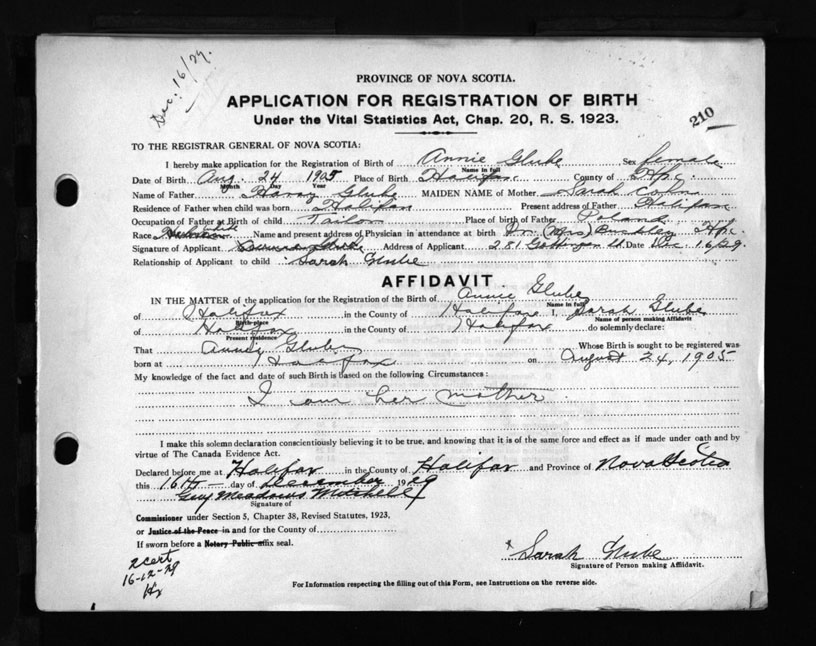 Dec. 16/29
PROVINCE OF NOVA SCOTIA.
APPLICATION FOR REGISTRATION OF BIRTH
Under the Vital Statistics Act, Chap. 20, R. S. 1923.
210
TO THE REGISTRAR GENERAL OF NOVA SCOTIA:
I hereby make application for the Registration of Birth of Annie Glube Sex female
Name in full
Date of Birth Aug. 24 1905 Place of Birth Halifax County of Hfx.
Month Day Year
Name of Father Harry Glube MAIDEN NAME of Mother Sarah Cohn
Residence of Father when child was born Halifax Present address of Father Halifax
Occupation of Father at Birth of child Tailor Place of birth of Father Poland
Race Hebrew white Name and present address of Physician in attendance at birth Dr. (Mrs) Buckley Hfx.
Signature of Applicant Glube Address of Applicant 281 Gottingen St. Date Dec 16/29.
Relationship of Applicant to child Sarah Glube
AFFIDAVIT.
IN THE MATTER of the application for the Registration of the Birth of Annie Glube
Name in full
of Halifax in the County of Halifax I, Sarah Glube
Birth-place Name of person making Affidavit
of Halifax in the County of Halifax do solemnly declare:
Present residence
That Annie Glube Whose Birth is sought to be registered was
born at Halifax on August 24, 1905
My knowledge of the fact and date of such Birth is based on the following Circumstances:
I am her mother.
I make this solemn declaration conscientiously believing it to be true, and knowing that it is of the same force and effect as if made under oath and by
virtue of The Canada Evidence Act.
Declared before me at Halifax in the County of Halifax and Province of Nova Scotia
this 16th day of December 1929
Guy Meadows Mitchell
Signature of
Commissioner under Section 5, Chapter 38, Revised Statutes, 1923,
or Justice of the Peace in and for the County of
If sworn before a Notary Public affix seal.
2 cert
16-12-29
Hx
x Sarah Glube
Signature of Person making Affidavit.
For Information respecting the filling out of this Form, see Instructions on the reverse side.